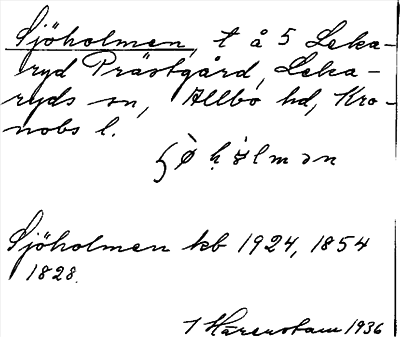 Sjöholmen, t å 5 Leka-
ryd Prästgård, Leka-
ryds sn, Allbo hd, Kro-
nobs l.
Sjöholmen kb 1924, 1854
1828.
1936